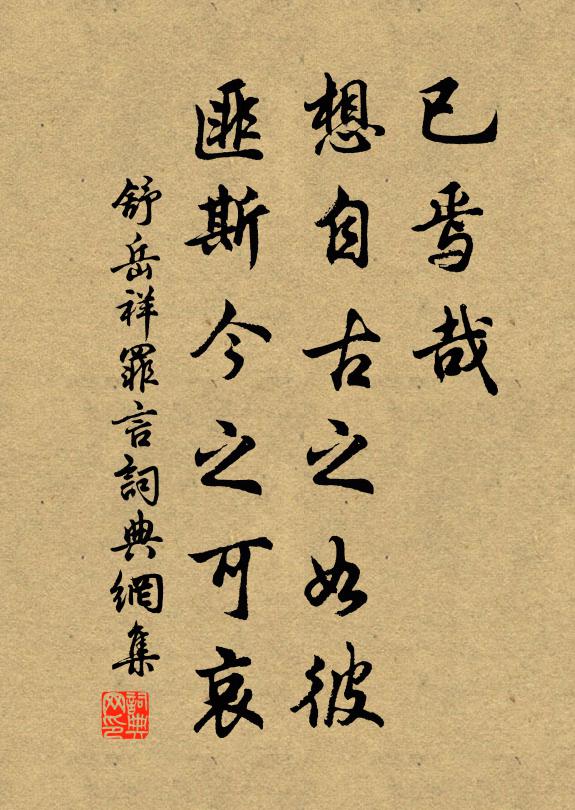 已焉哉
想自古之如彼
匪斯今之可哀
舒岳祥罪言詞典網集
詞典网印